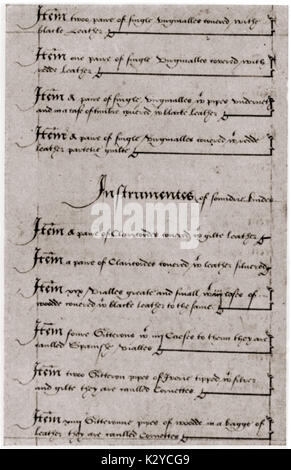 Item twoo paire of single Virginalles covered with
blacke Leather
Item one paire of single Virginalles covered with
redde Leather
Item a paire of single Virginalles wt pipes undernethe
and in a case of timbre covered wt blacke leather
Item a paire of single Virginalles covered wt redde
leather partelie guilte
Instrumentes of soundrie kindes
Item a paire of Claricordes covered wt gilte leather
Item a paire of Claricordes covered wt leather silvered
Item xix Vialles greate and small wt iij cases of
woodde covered wt blacke leather to the same
Item foure Gitterons wt iiij Caeses to them they are
caulled Spanishe Vialles
Item twoo Gitteron pipes of Iverie tipped wt silver
and gilte they are caulled Cornettes
Item xiiij Gitteronne pipes of woodde in a bagge of
leather they are caulled Cornettes
alamy
Image ID: K2YCG9
www.alamy.com